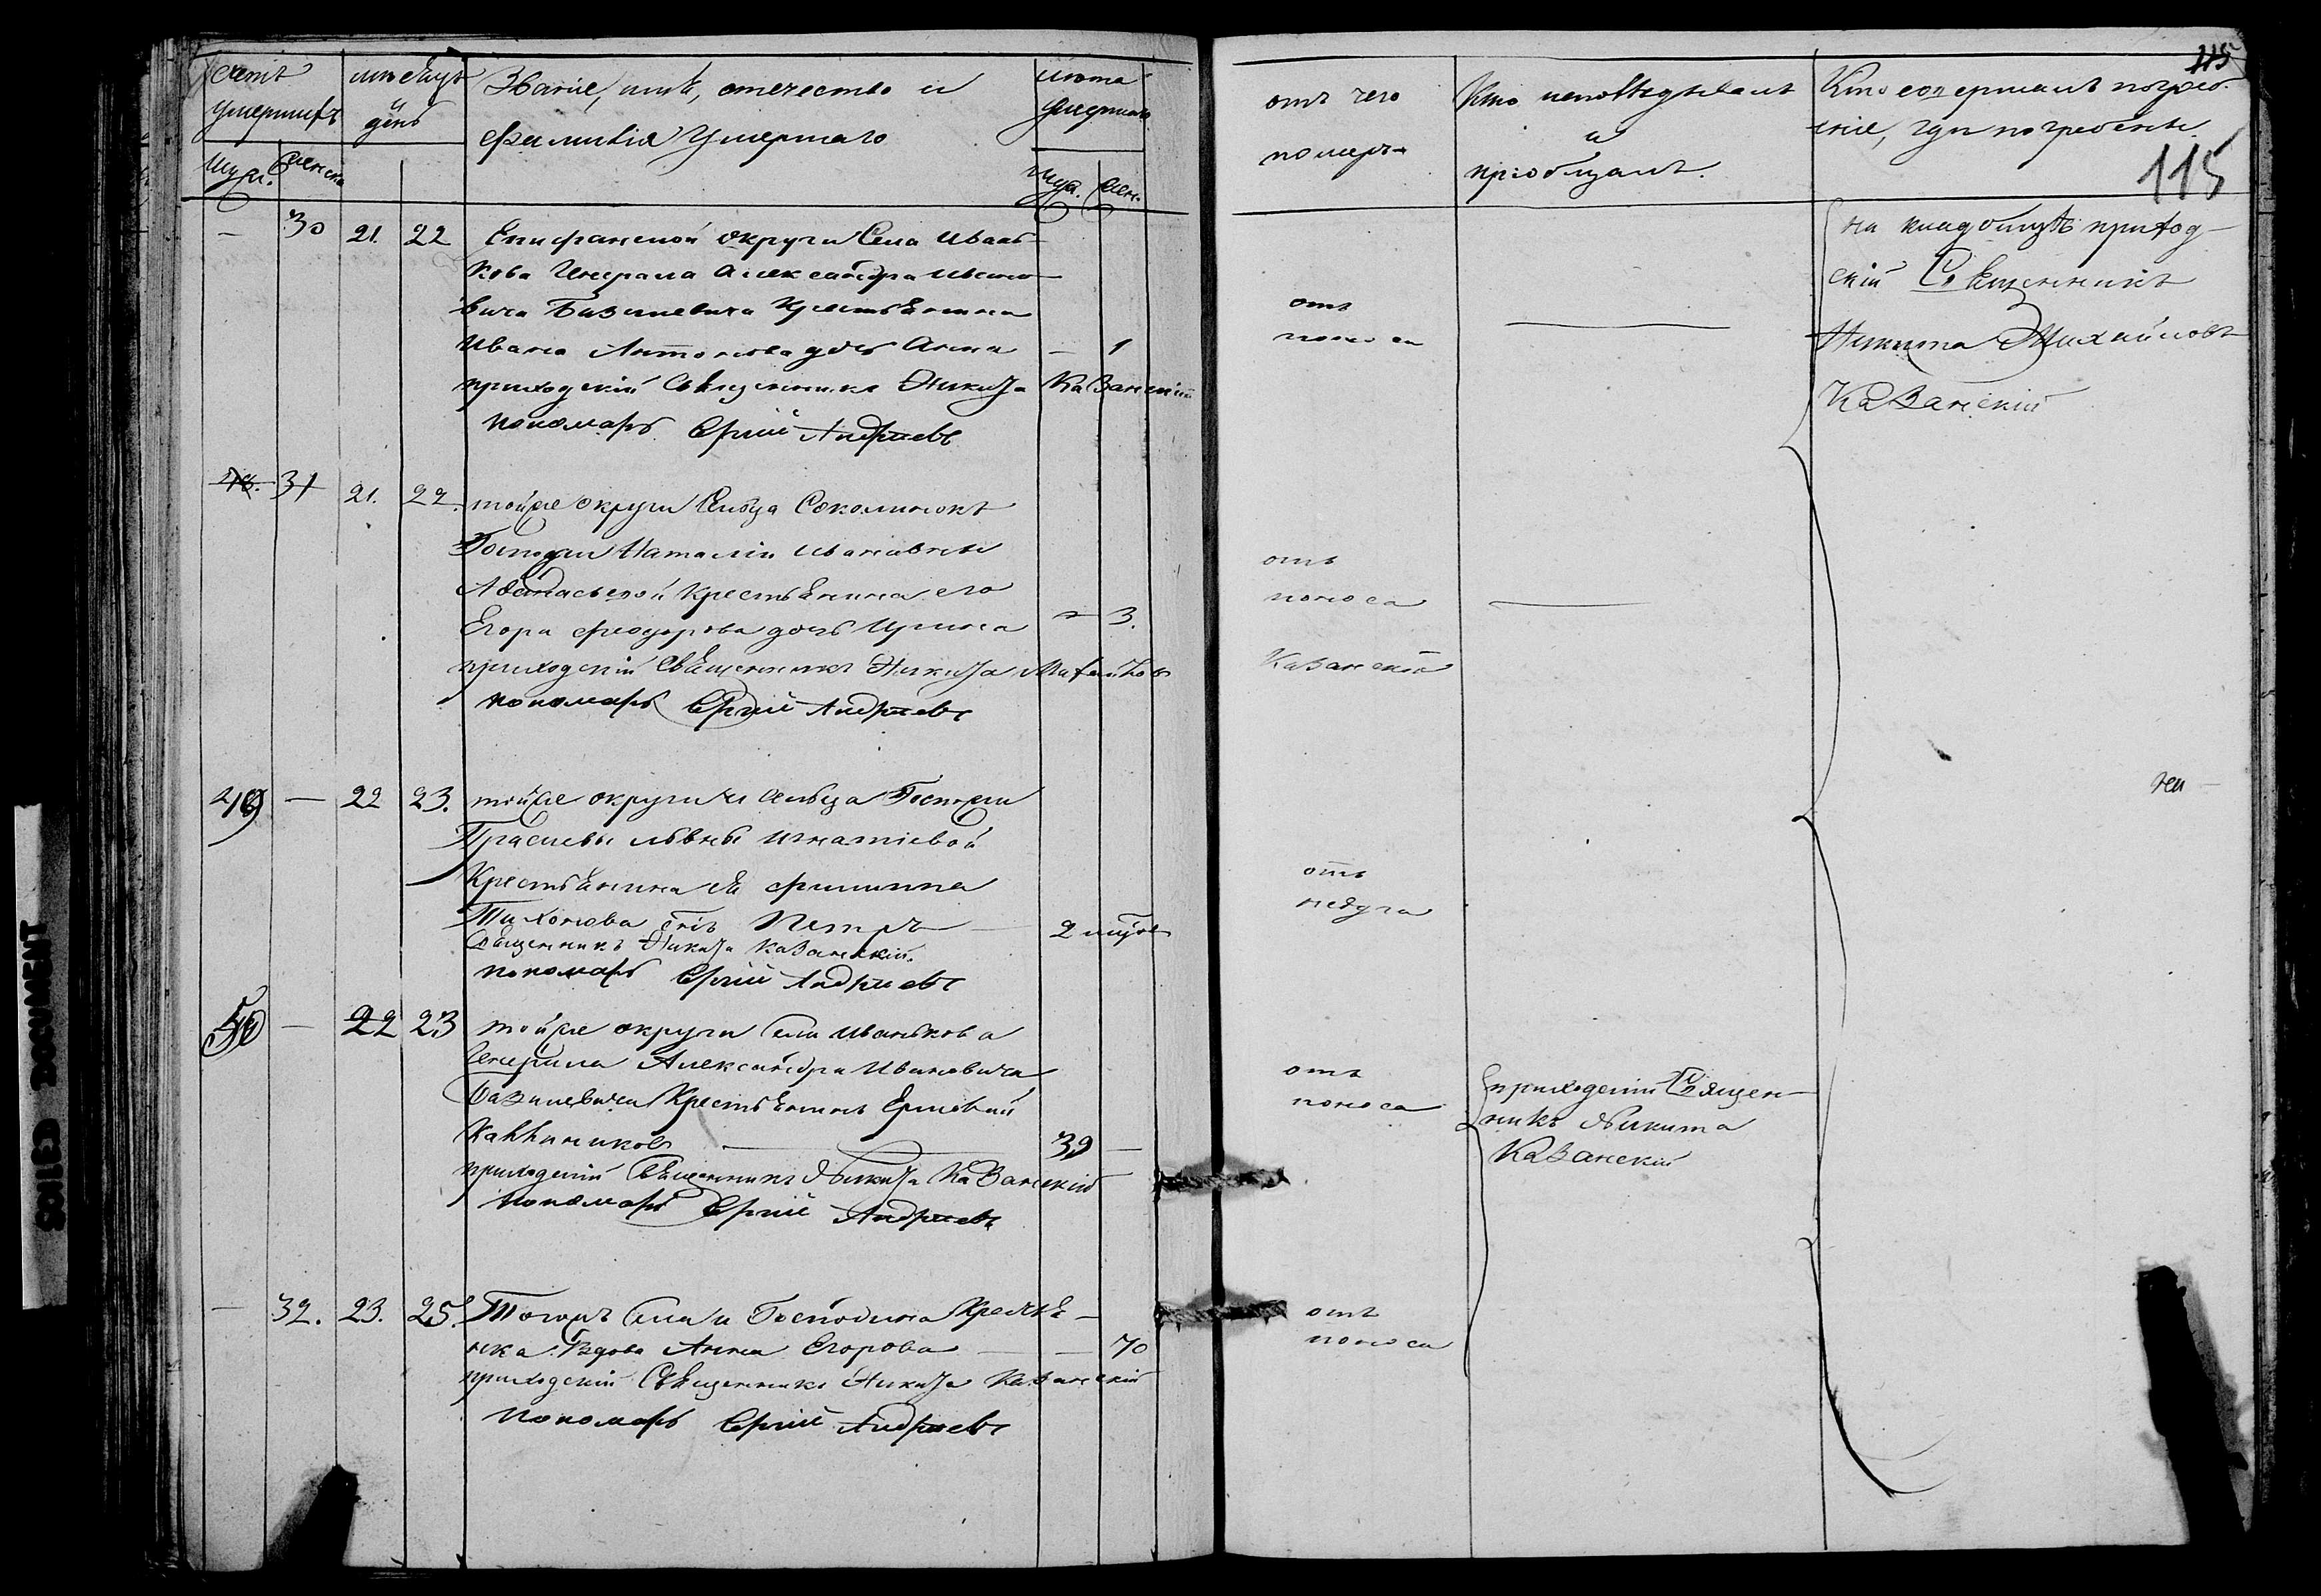 Счетъ умершихъ
Муж. Женска
мѣсяцъ и день
Званіе, имя, отечество и
фамилія умершаго
лѣта умершаго
Муж. Жен.
отъ чего
померъ
Кто исповѣдывалъ
и
пріобщалъ.
Кто совершалъ погребе-
ніе, гдѣ погребены.
115
115
— 30 21. 22 Епифанской округи Села Ивань-
кова Генерала Александра Ивано-
вича Базилевича Крестьянина
Ивана Антонова дочь Анна — 1
приходскій Священникъ Никита Казанскій
пономарь Сргій Андріевъ
отъ
поноса
на кладбищѣ приход-
скій Священникъ
Никита Михайловъ
Казанскій
31 21. 22. тойже округи Сельца Соколинокъ
Госпожи Наталіи Ивановны
Крестьянина его
Егора Феодорова дочь Ирина — 3.
приходскій Священникъ Никита Михайловъ Казанскій
пономарь Сргій Андріевъ
отъ
поноса
49 — 22 23. тойже округи и сельца Госпожи
львны Игнатіевой
Крестьянина ея Филиппа
Тихонова сынъ Петръ — 2
Священникъ Никита Казанскій.
пономарь Сргій Андріевъ
отъ
недуга
на
50 — 22 23 тойже округи Села Иванькова
Генерала Александра Ивановича
Базилевича Крестьянинъ
39 —
приходскій Священникъ Никита Казанскій
пономарь Сргій Андріевъ
отъ
поноса
приходскій Священ-
никъ Никита
Казанскій
— 32. 23. 25. Тогожъ Села и Господина Крестья-
нка Вдова Анна Егорова — — 70
приходскій Священникъ Никита Казанскій
пономарь Сргій Андріевъ
отъ
поноса
DOCUMENT